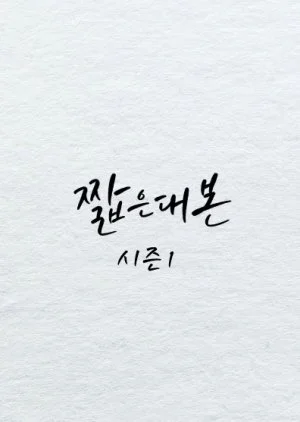 짧은대본
시즌1